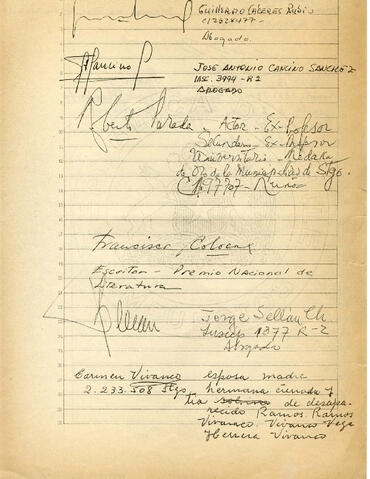 GUILLERMO CACERES RUBIO
Abogado.
JOSE ANTONIO CANCINO SANCHEZ
INSC. 3994 - R2
ABOGADO
Roberto Parada - Actor - Ex-Profesor
Secundario - Ex-Profesor
Universitario - Medalla
de Oro de la Municipalidad de Stgo.
Francisco Coloane
Escritor - Premio Nacional de
Literatura
Jorge Sellan Ch.
1377 R-2
Abogado
Carmen Vivanco esposa madre
2.233.508 Stgo. hermana cuñada y
tia de desapa-
recido Ramos. Ramos
Vivanco. Vivanco Vega
y Herrera Vivanco